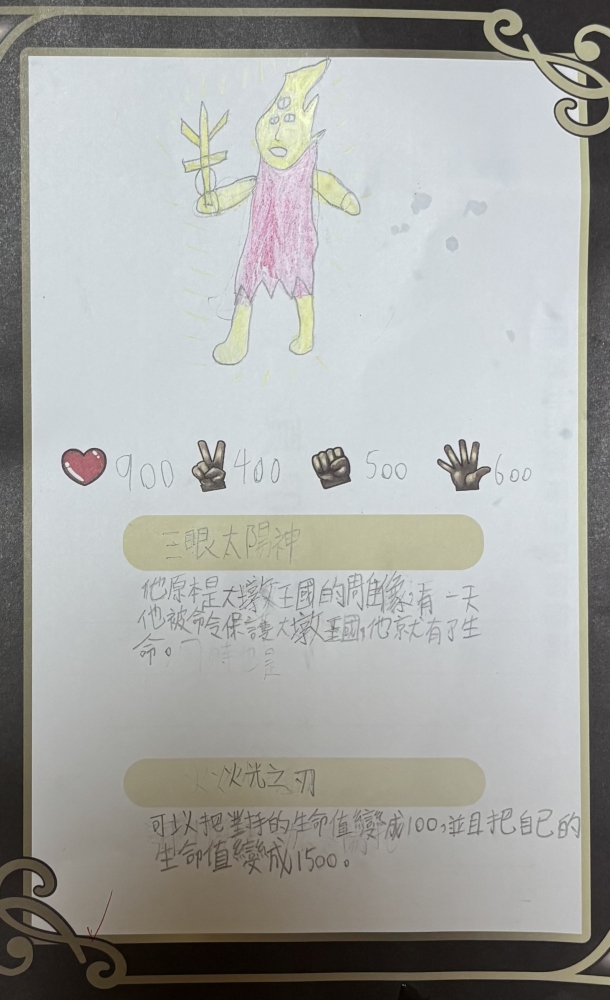 900 400 500 600
三眼太陽神
他原本是大墩王國的周隹像,有一天
他被命令保護大墩王國,他就有了生
命。
火光之刃
可以把對持的生命值變成100,並且把自己的
生命值變成1500。